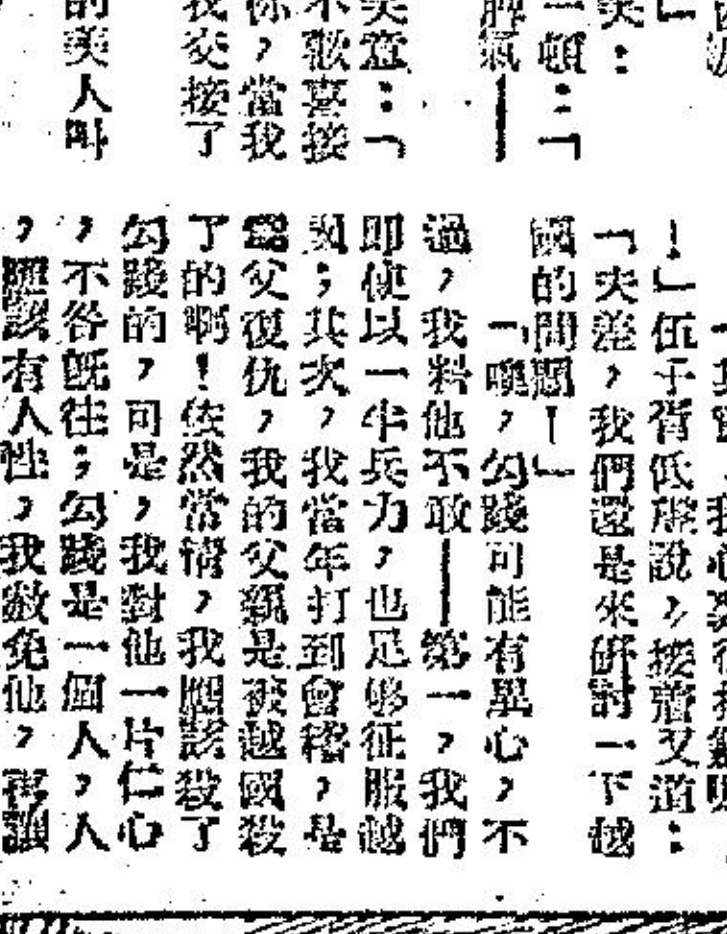 」
笑：
一頓：「
脾氣——
美意：「
不歡喜接
你，當我
我交接了
的美人叫
！」伍子胥低聲說，接着又道：
「夫差，我們還是來研討一下越
國的問題！」
「噢，勾踐可能有異心，不
過，我料他不敢——第一，我們
即使以一半兵力，也足够征服越
國；其次，我當年打到會稽，是
爲父復仇，我的父親是被越國殺
了的啊！依然常情，我應該殺了
勾踐的，可是，我對他一片仁心
，不咎既往；勾踐是一個人，人
，應該有人性，我赦免他，再讓